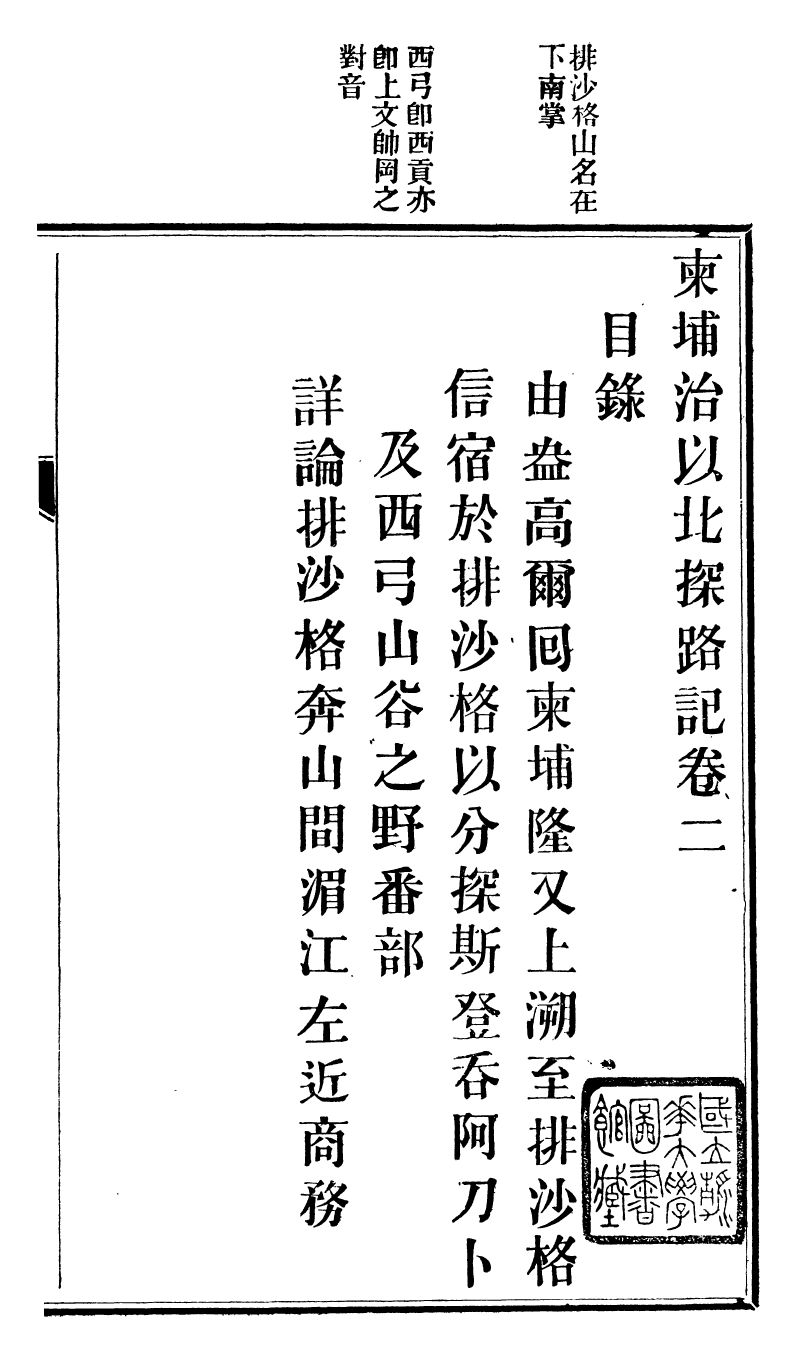 排沙格山名在
下南掌
西弓卽西貢亦
卽上文帥岡之
對音
柬埔治以北探路記卷二
目錄
由盎高爾囘柬埔隆又上溯至排沙格
信宿於排沙格以分探斯登吞阿刀卜
及西弓山谷之野番部
詳論排沙格奔山間湄江左近商務
國立清
華大學
圖書
館藏